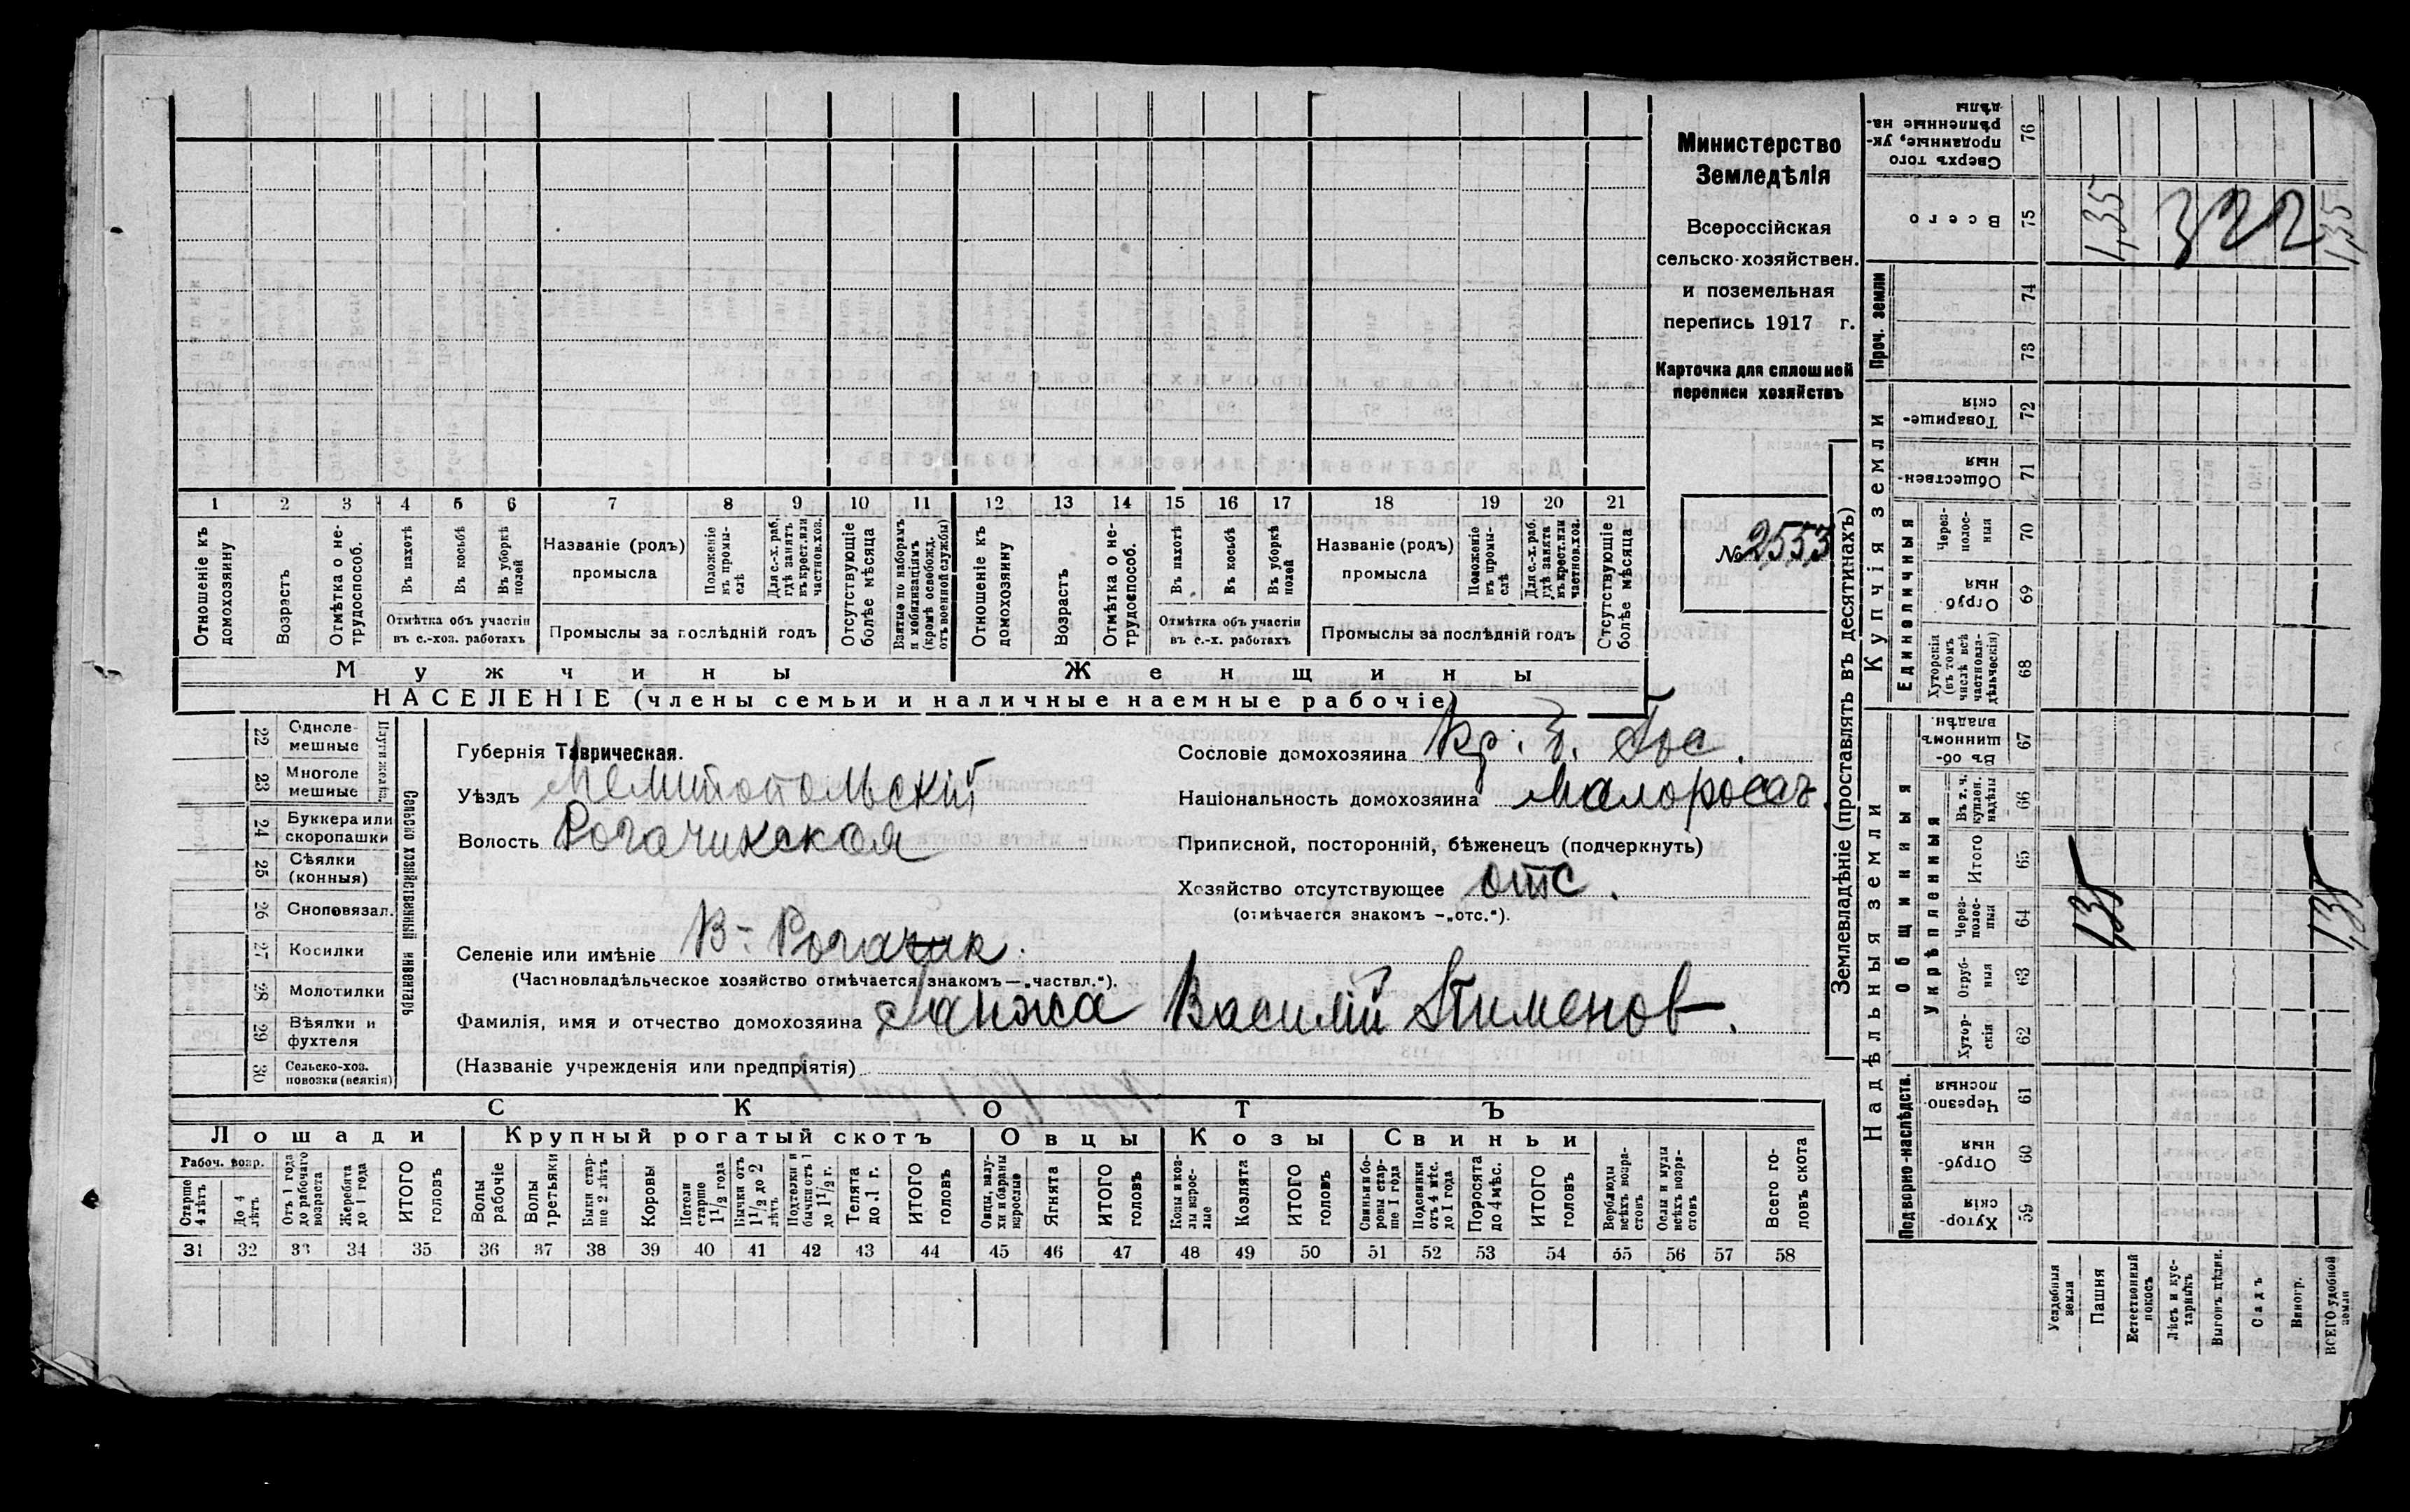 Министерство
Земледѣлія
Всероссійская
сельско-хозяйствен.
и поземельная
перепись 1917 г.
Карточка для сплошной
переписи хозяйствъ
№ 2553
1 2 3 4 5 6 7 8 9 10 11 12 13 14 15 16 17 18 19 20 21
Отношеніе къ домохозяину
Возрастъ
Отмѣтка о нетрудоспособ.
Въ пахотѣ
Въ косьбѣ
Въ уборкѣ полей
Отмѣтка объ участіи
въ с.-хоз. работахъ
Названіе (родъ)
промысла
Положеніе въ промыслѣ
Для с.-х. раб., гдѣ занятъ въ крест. или частнов. хоз.
Промыслы за послѣдній годъ
Отсутствующіе болѣе мѣсяца
Взятые по наборамъ и мобилизаціямъ (кромѣ освобожд. отъ военной службы)
Отношеніе къ домохозяину
Возрастъ
Отмѣтка о нетрудоспособ.
Въ пахотѣ
Въ косьбѣ
Въ уборкѣ полей
Отмѣтка объ участіи
въ с.-х. работахъ
Названіе (родъ)
промысла
Положеніе въ промыслѣ
Для с.-х. раб. гдѣ занята въ крест. или частнов. хоз.
Промыслы за послѣдній годъ
Отсутствующіе болѣе мѣсяца
Мужчины Женщины
НАСЕЛЕНІЕ (члены семьи и наличные наемные рабочіе)
Сельско хозяйственный инвентарь
22 Однолемешные
23 Многолемешные
24 Буккера или скоропашки
25 Сѣялки (конныя)
26 Сноповязал.
27 Косилки
28 Молотилки
29 Вѣялки и фухтеля
30 Сельско-хоз. повозки (всякія)
Губернія Таврическая.
Уѣздъ Мелитопольскій
Волость Рогачикская
Селеніе или имѣніе В-Рогачик.
(Частновладѣльческое хозяйство отмѣчается знакомъ —„частвл.“).
Сословіе домохозяина Кр.
Національность домохозяина малоросъ
Приписной, посторонній, бѣженецъ (подчеркнуть)
Хозяйство отсутствующее отс.
(отмѣчается знакомъ —„отс.“).
Фамилія, имя и отчество домохозяина Ланжа Василій Пименов.
(Названіе учрежденія или предпріятія)
СКОТЪ
Лошади Крупный рогатый скотъ Овцы Козы Свиньи
Рабоч. возр.
Старше 4 лѣтъ
До 4 лѣтъ
Отъ 1 года до рабочаго возраста
Жеребята до 1 года
ИТОГО головъ
Волы рабочіе
Волы третьяки
Быки старше 2 лѣтъ
Коровы
Нетели старше 1 1/2 года
Бычки отъ 1 1/2 до 2 лѣтъ
Подтелки и бычки отъ 1 до 1 1/2 г.
Телята до 1 г.
ИТОГО головъ
Овцы, валухи и бараны взрослые
Ягнята
ИТОГО головъ
Козы и козлы взрослые
Козлята
ИТОГО головъ
Свиньи и боровы старше 1 года
Подсвинки отъ 4 мѣс. до 1 года
Поросята до 4 мѣс.
ИТОГО головъ
Верблюды всѣхъ возрастовъ
Ослы и мулы всѣхъ возрастовъ
Всего головъ скота
31 32 33 34 35 36 37 38 39 40 41 42 43 44 45 46 47 48 49 50 51 52 53 54 55 56 57 58
Землевладѣніе (проставлять въ десятинахъ)
Надѣльныя земли
Купчія земли
Проч. земли
Подворно-наслѣдств.
Общинныя
Укрѣпленныя
Единоличныя
76 Сверхъ того проданные, укрѣпленные надѣлы
75 Всего 1,35 322 1,35
74
73
72 Товарищескія
71 Общественныя
70 Черезполосныя
69 Отрубныя
68 Хуторскія (въ томъ числѣ всѣ частновладѣльческія)
67 Въ общинномъ владѣн.
66 Въ т. ч. куплен. надѣлы
65 Итого
64 Черезполосныя 1,35 1,35
63 Отрубныя
62 Хуторскія
61 Черезполосныя
60 Отрубныя
59 Хуторскія
Усадебныя земли
Пашня
Естественный покосъ
Лѣсъ и кустарникъ
Выгонъ цѣлин.
Садъ
Виногр.
ВСЕГО удобной земли